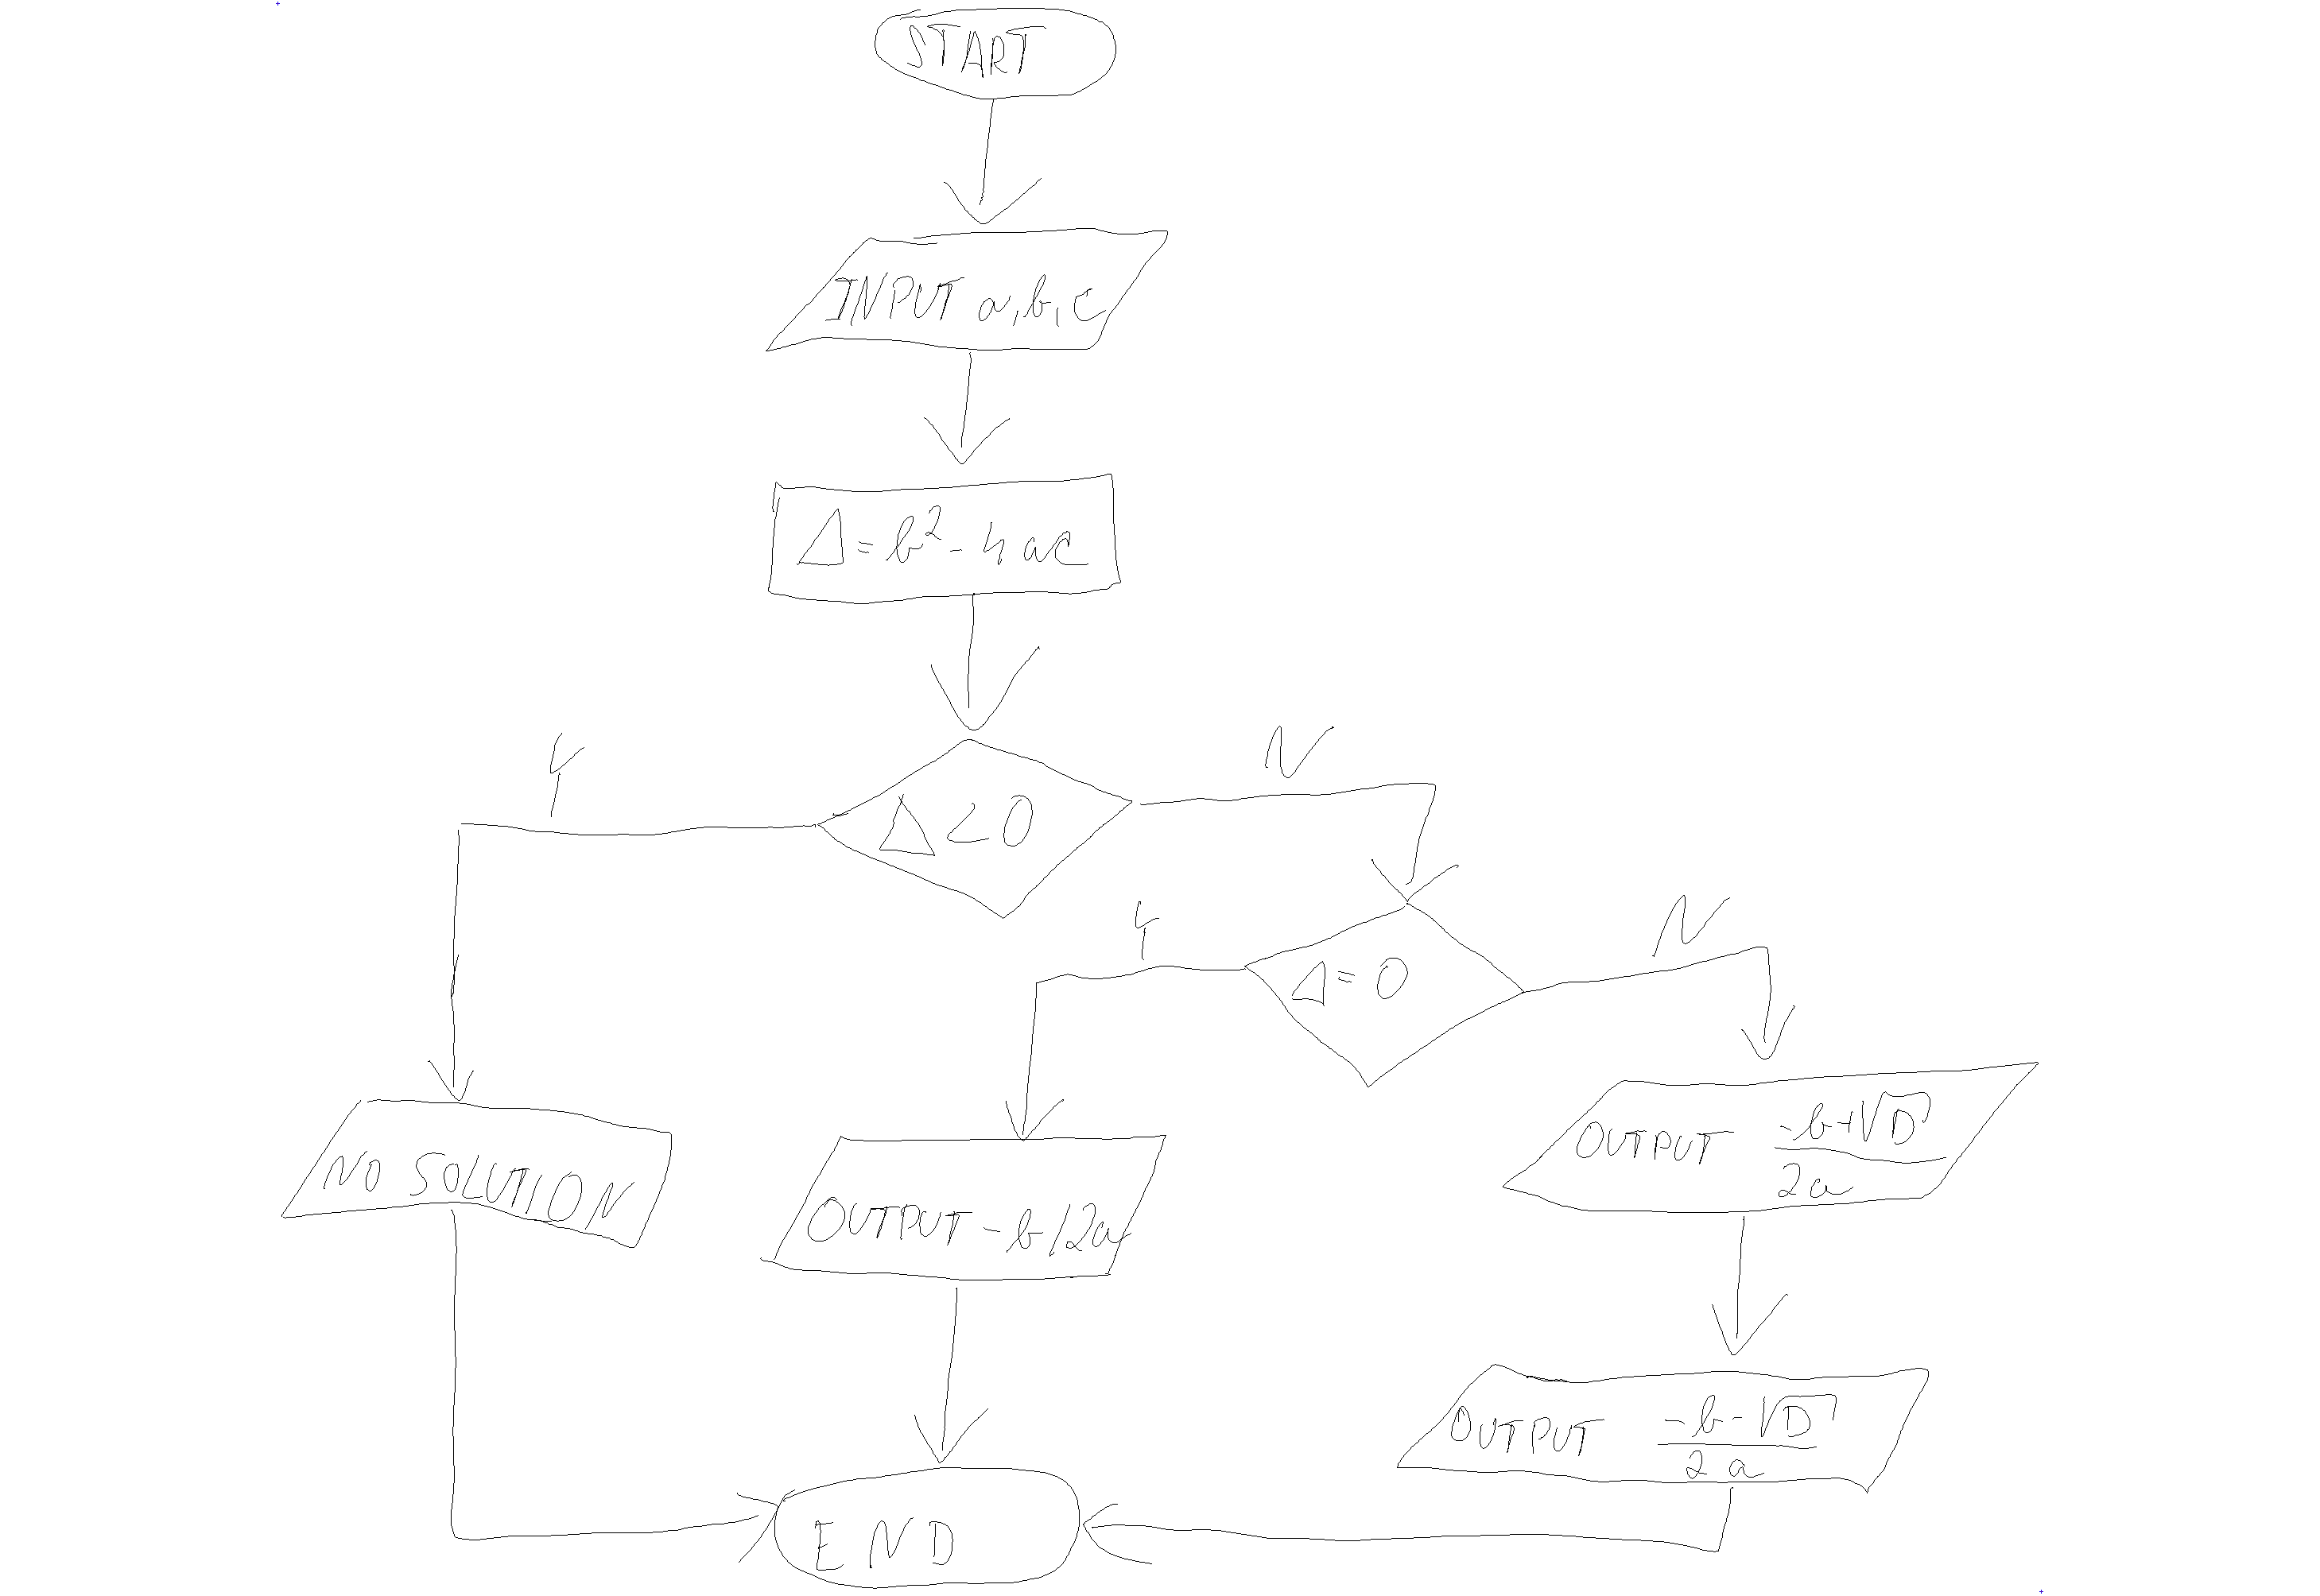 START
INPUT a, b, c
Δ = b² - 4ac
Y
N
Δ < 0
Y
N
Δ = 0
NO SOLUTION
OUTPUT - b/2a
OUTPUT (-b+√D)/2a
OUTPUT (-b-√D)/2a
END